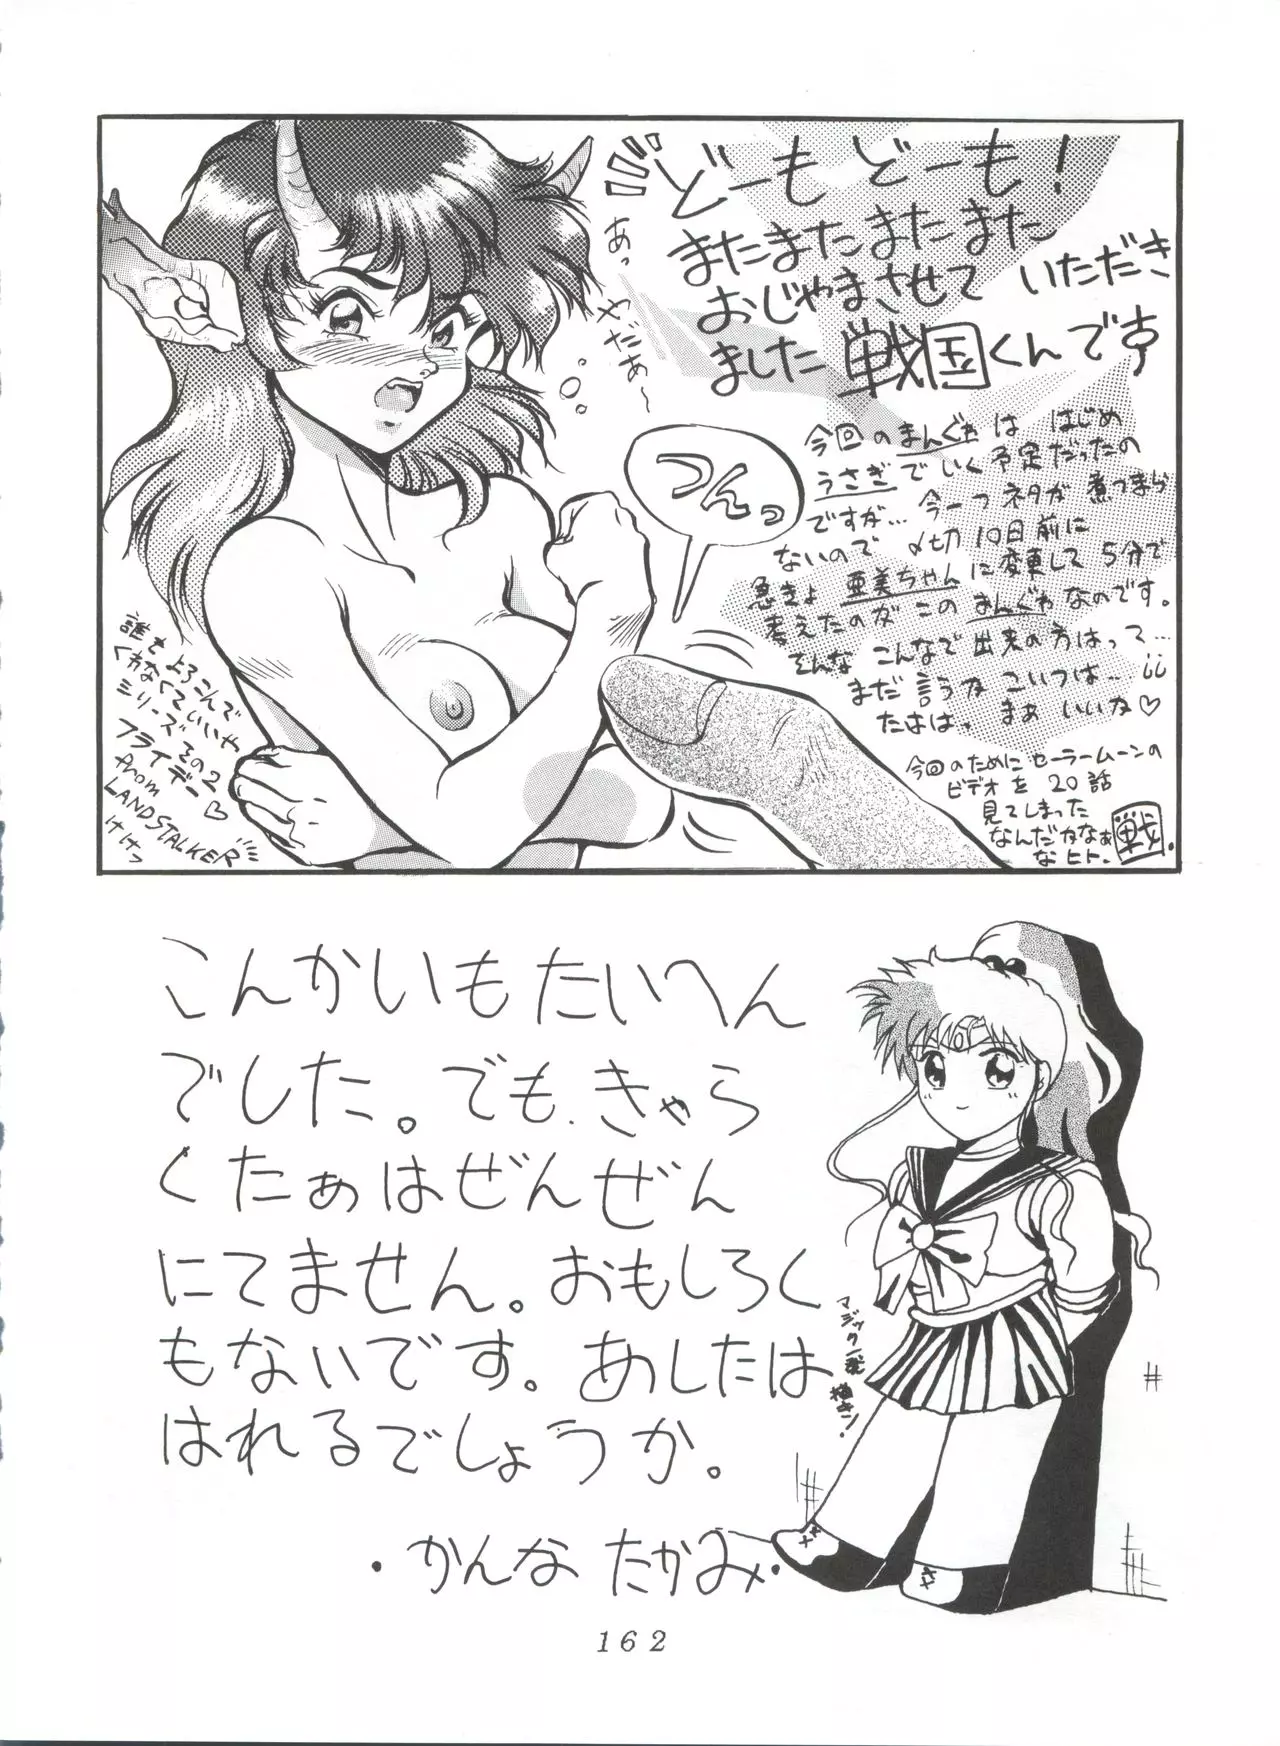 どーもどーも!
またまたまたまた
おじゃまさせていただき
ました戦国くんです
あっ
やだぁ〜
つんっ
今回のまんぐぁは はじめ
うさぎでいく予定だったの
ですが… 今一つネタが煮つまら
ないので 〆切10日前に
急きょ 亜美ちゃんに変更して 5分で
考えたのがこのまんぐぁなのです。
そんな こんなで出来の方はって…
まだ言うか こいつは…
たはは まぁ いいか♡
今回のためにセーラームーンの
ビデオを 20話
見てしまった
なんだかなぁ
なヒト.
戦
誰もよろこんで
くれなくていいや
シリーズその2
フライデー♡
from
LANDSTALKER
けけっ
こんかいもたいへん
でした。でも、きゃら
くたぁはぜんぜん
にてません。おもしろく
もないです。あしたは
はれるでしょうか。
・かんな たかみ・
マジック一発
描キン!
162